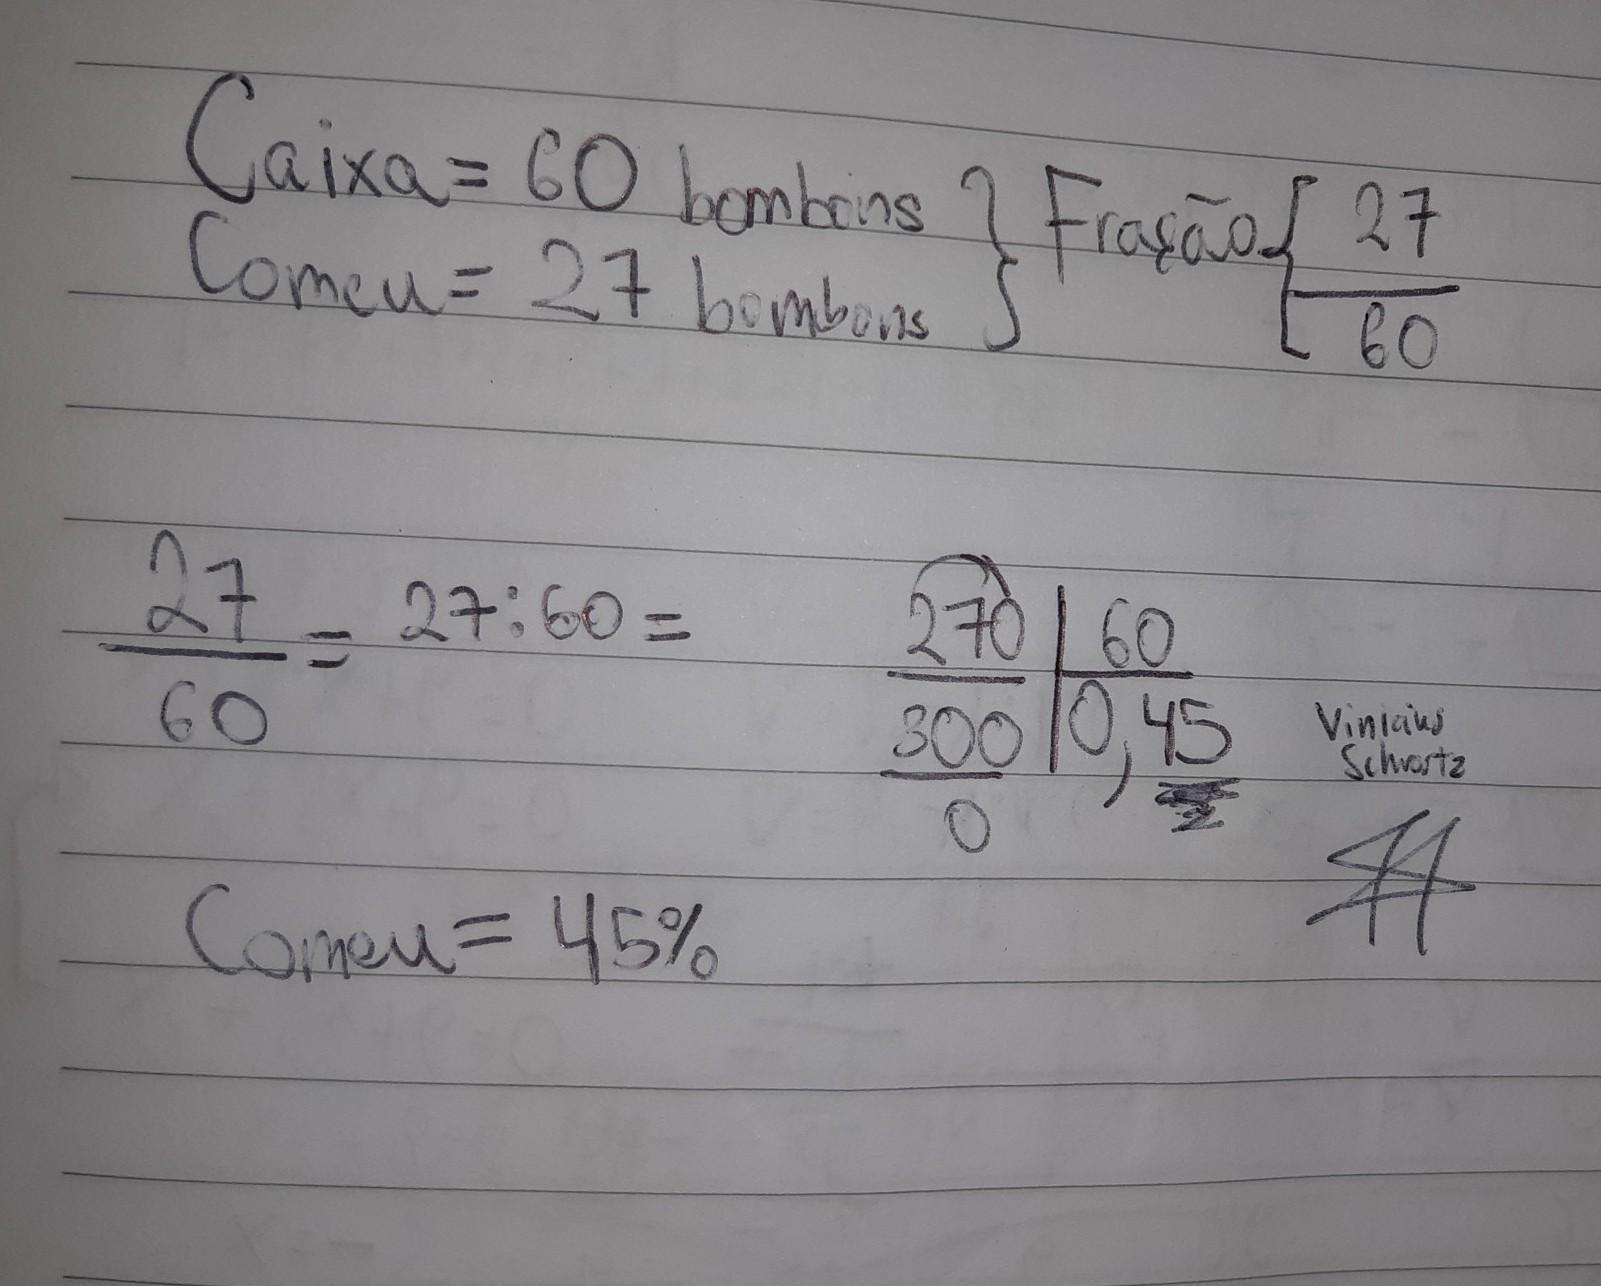 Caixa = 60 bombons } Fração { 27/60
Comeu = 27 bombons
27/60 = 27:60 =
270 | 60
300 | 0,45
0
Vinicius
Schwartz
Comeu = 45%